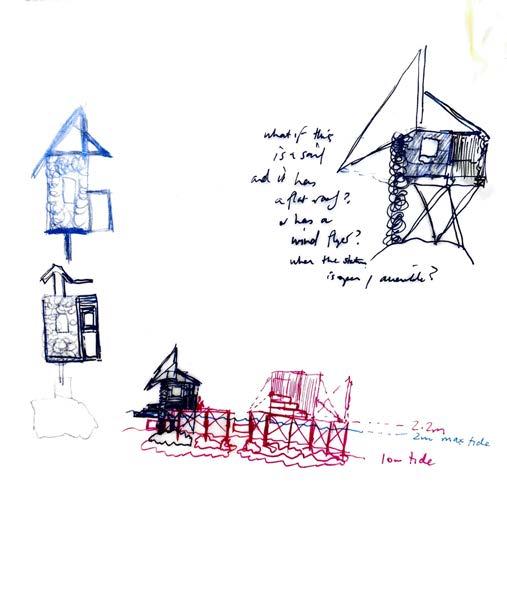 what if this
is a sail
and it has
a flat roof?
or has a
wind flyer?
when the station
is open /
2.2m
2m max tide
low tide